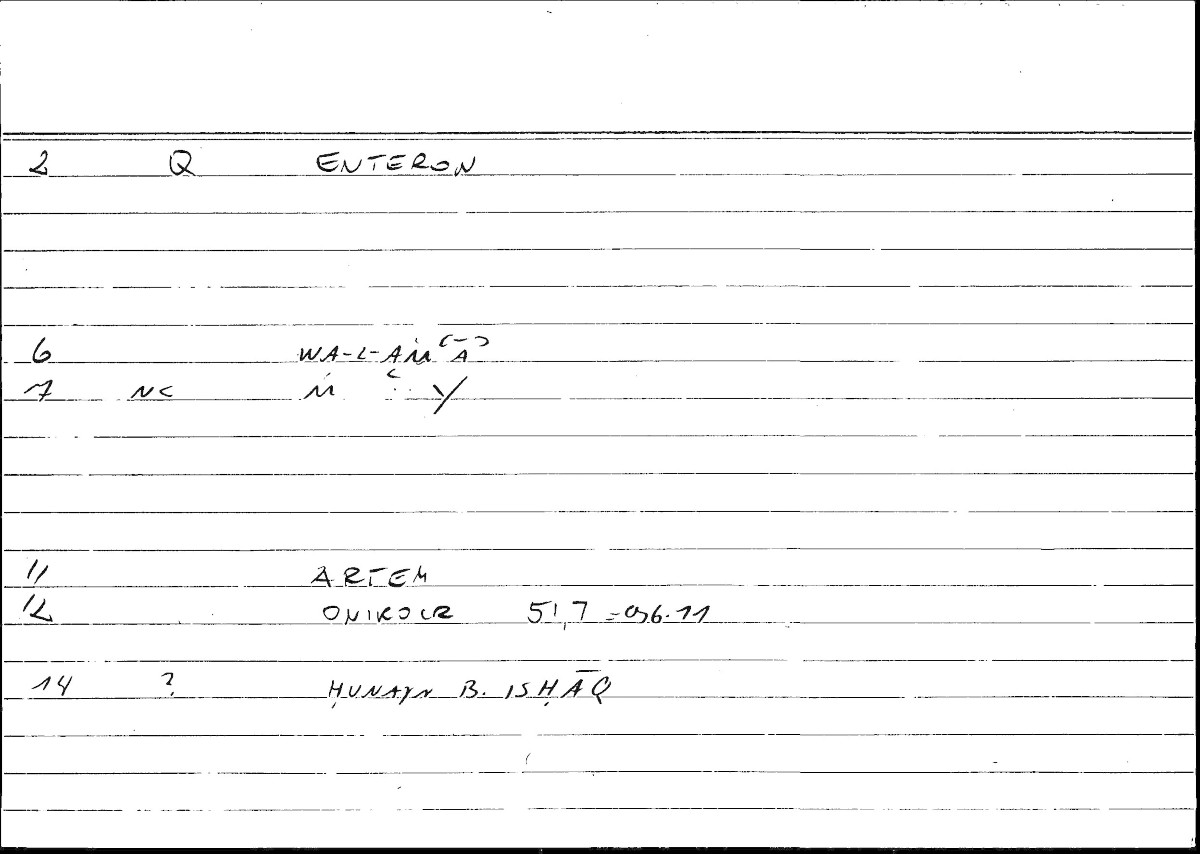 2 Q ENTERON
6 WA-L-AM
7 NC M Y
11 ARTEM
12 ONIROCR 51,7 = 096.11
14 ? ḤUNAYN B. ISḤĀQ